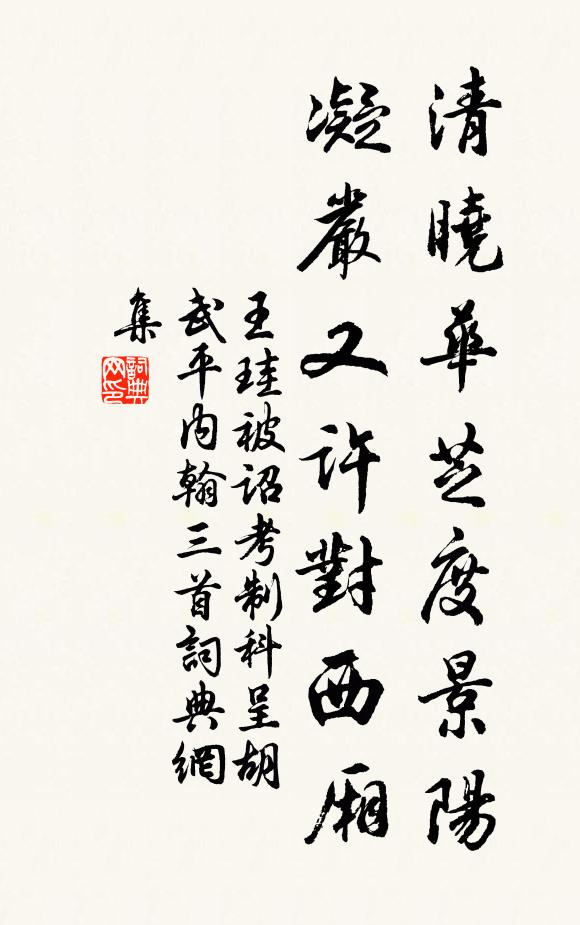 清曉華芝度景陽
凝嚴又許對西廂
王珪被詔考制科呈胡
武平內翰三首詞典網
集
詞典
网印